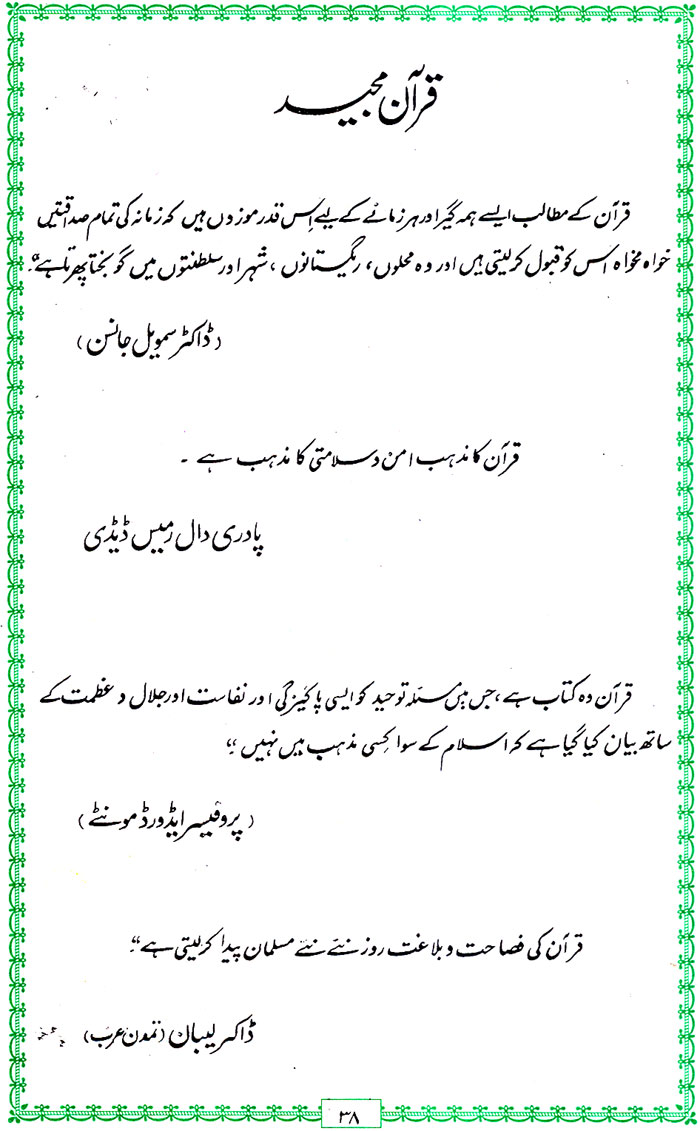 قرآن مجید
قرآن کے مطالب ایسے ہمہ گیر اور ہر زمانے کے لیے اِس قدر موزوں ہیں کہ زمانہ کی تمام صداقتیں
خواہ مخواہ اُس کو قبول کرلیتی ہیں اور وہ محلوں، ریگستانوں، شہر اور سلطنتوں میں گونجتا پھرتا ہے“۔
(ڈاکٹر سمویل جانسن)
قرآن کا مذہب امن و سلامتی کا مذہب ہے ۔
پادری وال رمیس ڈیڈی
قرآن وہ کتاب ہے، جس میں مسئلہ توحید کو ایسی پاکیزگی اور نفاست اور جلال و عظمت کے
ساتھ بیان کیا گیا ہے کہ اسلام کے سوا کِسی مذہب میں نہیں“۔
(پروفیسر ایڈورڈ مونٹے)
قرآن کی فصاحت و بلاغت روز نئے نئے مسلمان پیدا کرلیتی ہے“۔
ڈاکٹر لیبان (تمدن عرب)
۳۸